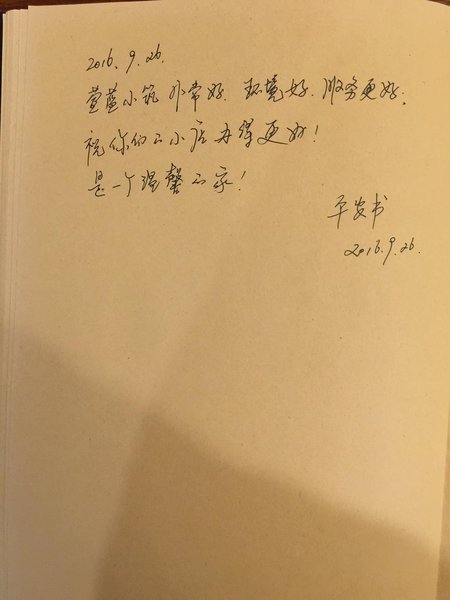 2016.9.26.
萱蓝小筑非常好.环境好.服务更好.
祝你们的小店办得更好!
是一个温馨的家!
平安书
2016.9.26.